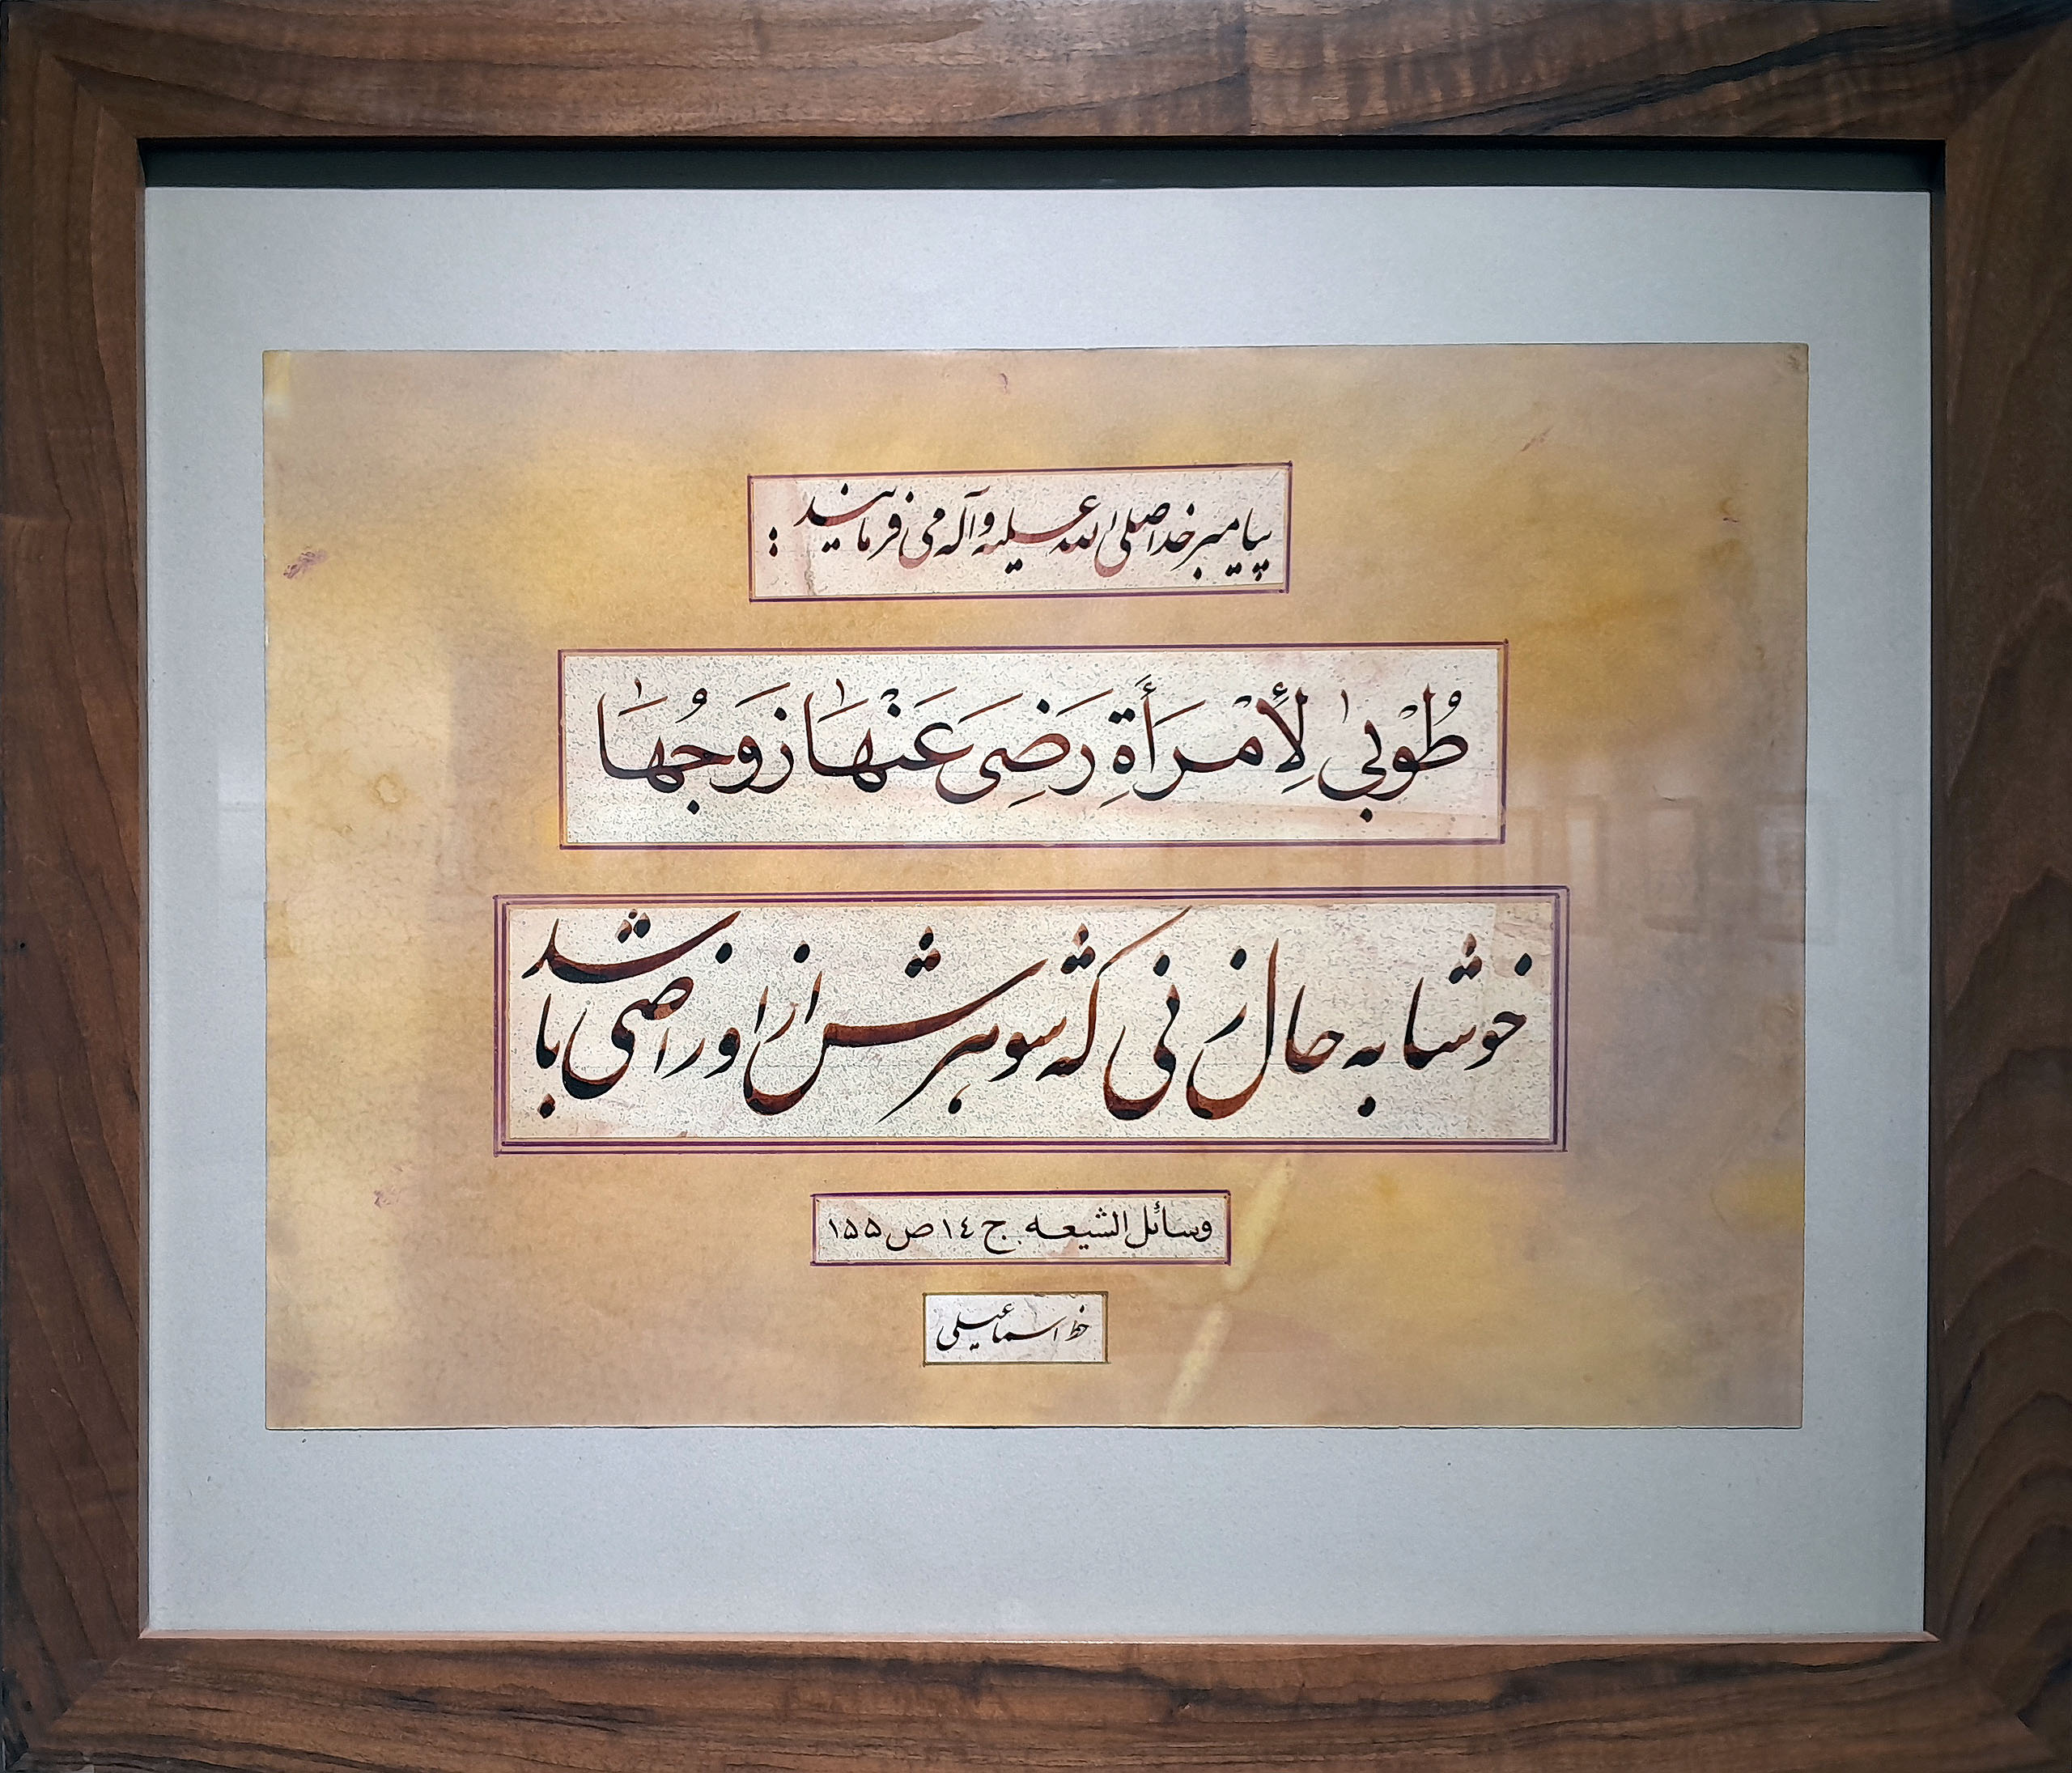 پیامبر خدا صلی الله علیه و آله می فرمایند :
طُوْبىٰ لِأَمْرَأَةِ رَضِىَ عَنْهٰا زَوَجُهٰا
خوشا به حال زنی که شوهرش از او راضی باشد
وسائل الشیعه ج ١٤ ص ١۵۵
خط اسماعیلی